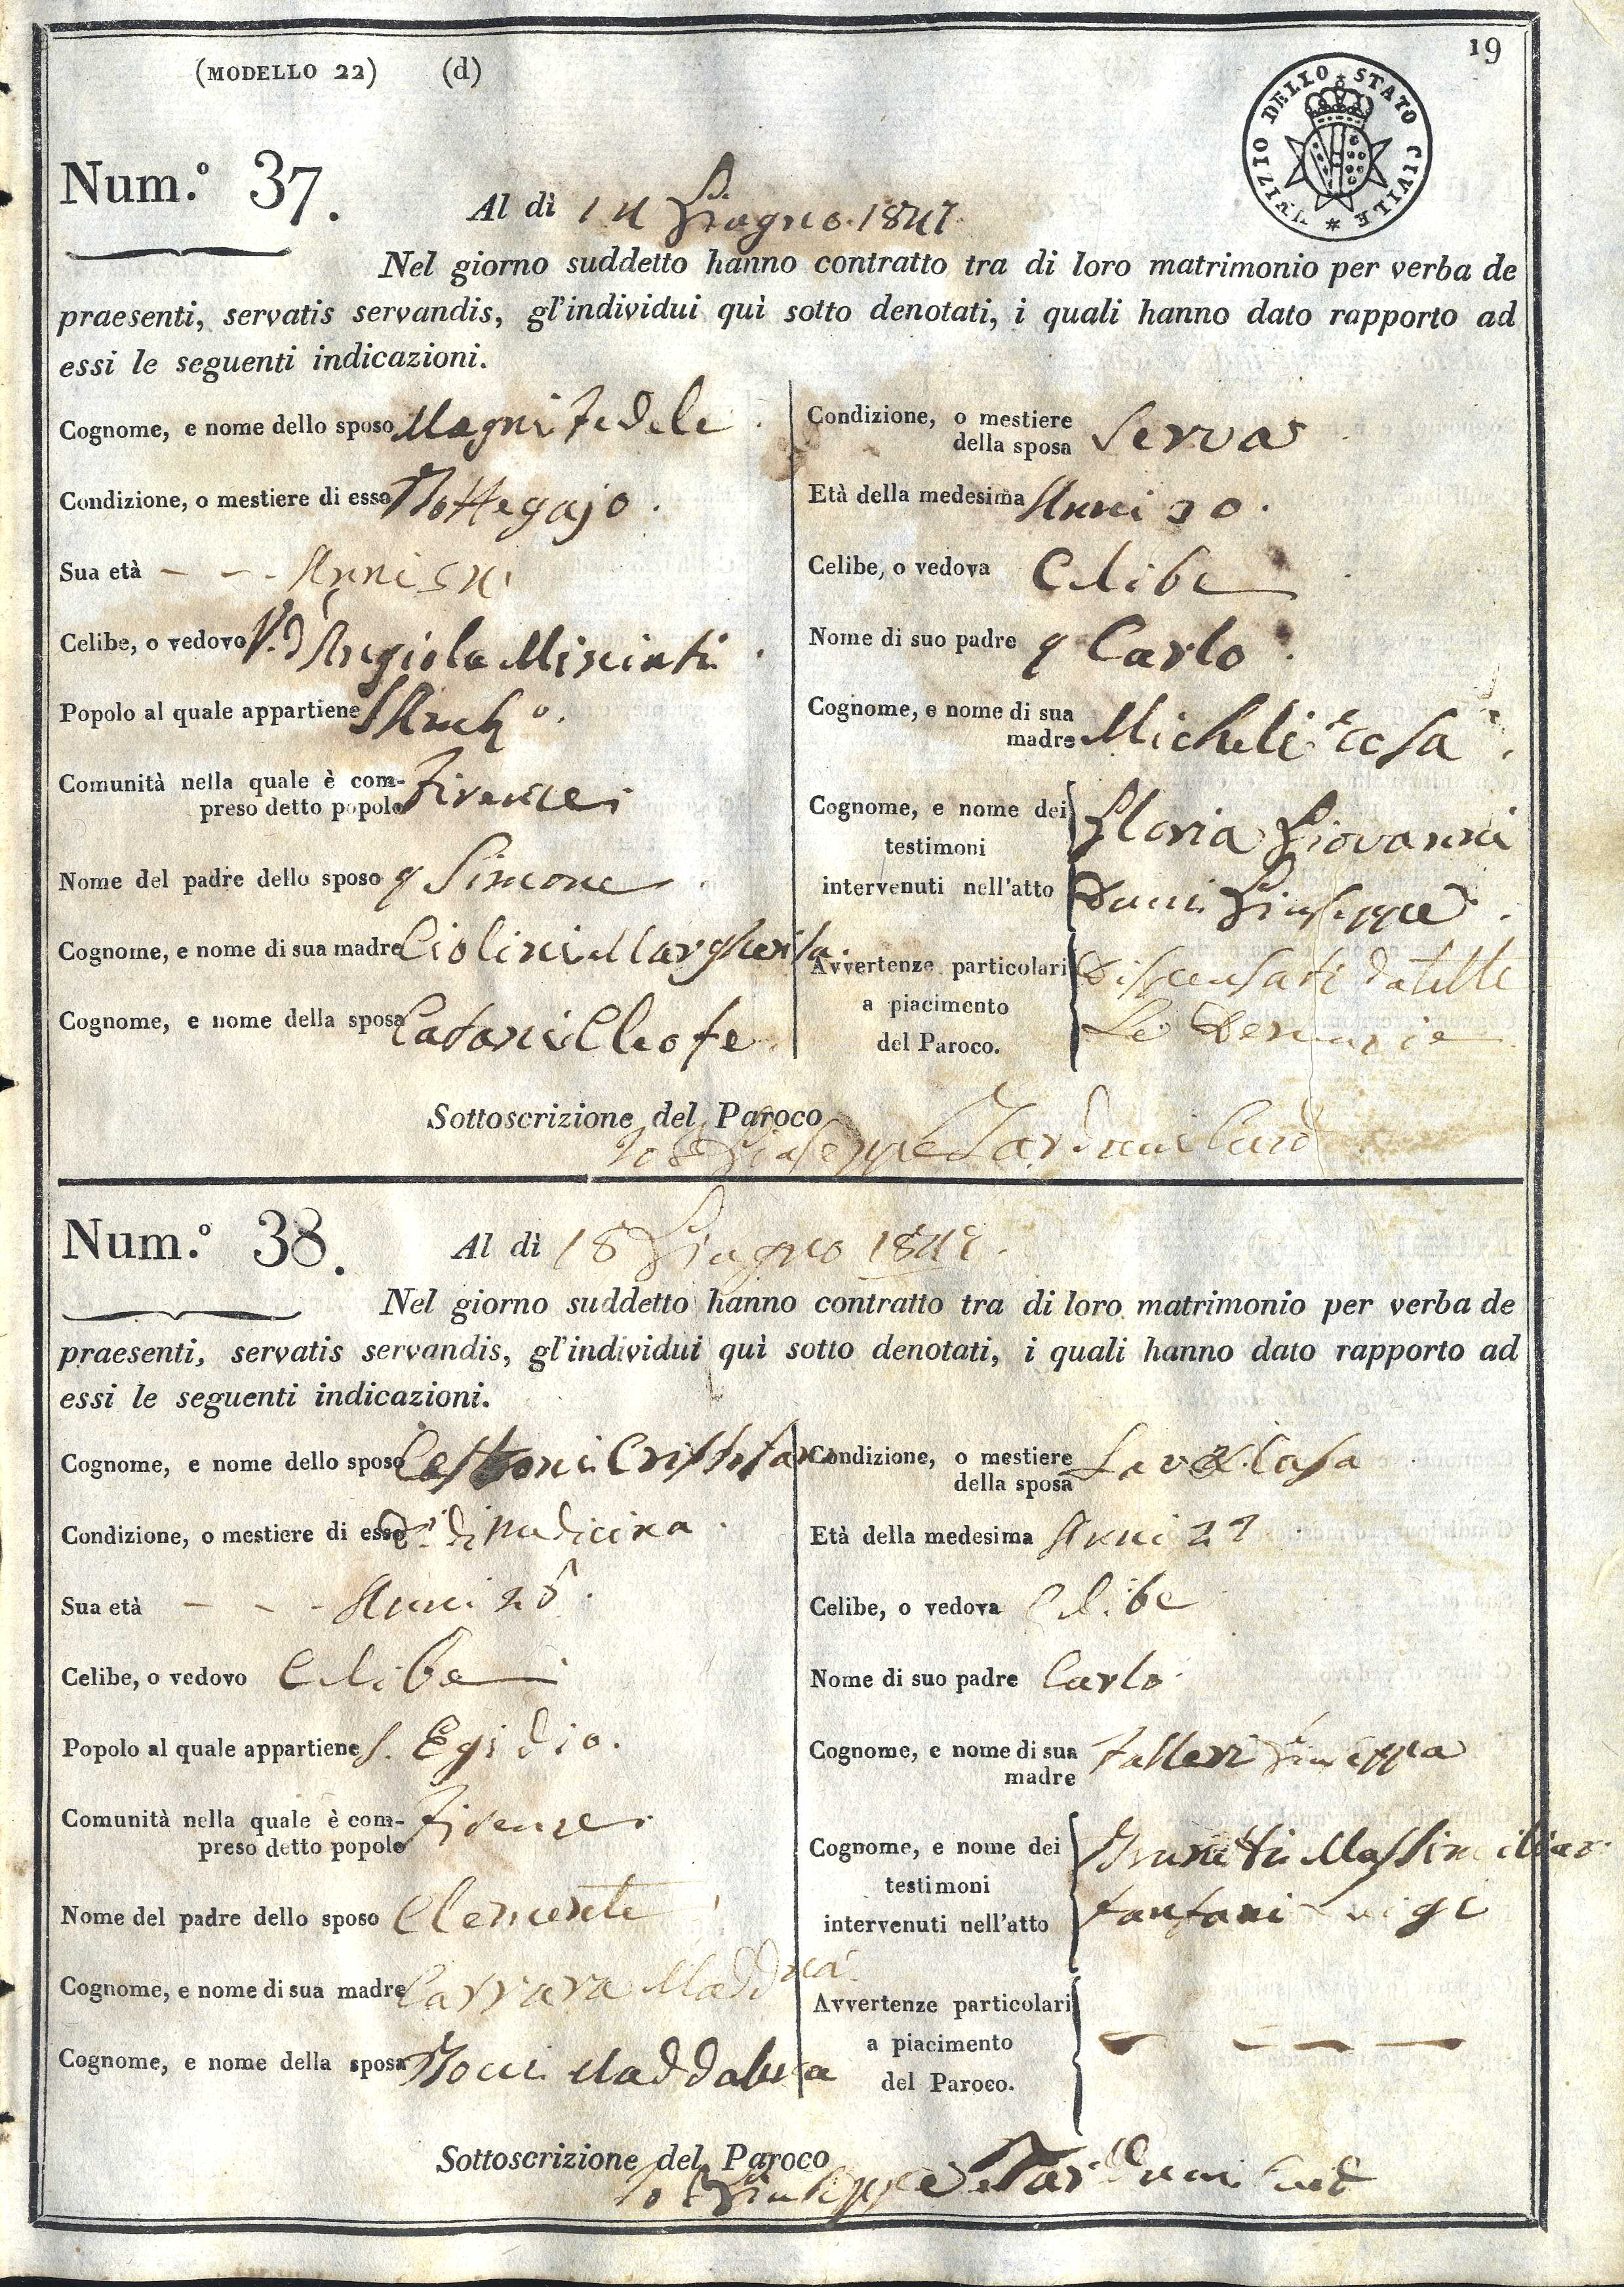 (MODELLO 22) (d)
19
UFIZIO DELLO STATO CIVILE *
Num.º 37.
Al dì 14 Giugno 1847
Nel giorno suddetto hanno contratto tra di loro matrimonio per verba de
praesenti, servatis servandis, gl'individui quì sotto denotati, i quali hanno dato rapporto ad
essi le seguenti indicazioni.
Cognome, e nome dello sposo Magni Fedele
Condizione, o mestiere di esso Bottegajo.
Sua età - - - Anni
Celibe, o vedovo V. d'Angiola Miniati
Popolo al quale appartiene
Comunità nella quale è com-
preso detto popolo Firenze
Nome del padre dello sposo q Simone
Cognome, e nome di sua madre Ciolini Margherita.
Cognome, e nome della sposa Catani Cleofe
Condizione, o mestiere
della sposa Serva
Età della medesima Anni 30.
Celibe, o vedova Celibe
Nome di suo padre q Carlo
Cognome, e nome di sua
madre Micheli Rosa
Cognome, e nome dei
testimoni
intervenuti nell'atto
Gloria Giovanni
Giuseppe
Avvertenze particolari
a piacimento
del Paroco.
Dispensati da tutte
Le Denunzie
Sottoscrizione del Paroco
Io Giuseppe Tarduni Curo
Num.º 38.
Al dì 18 Giugno 1847.
Nel giorno suddetto hanno contratto tra di loro matrimonio per verba de
praesenti, servatis servandis, gl'individui quì sotto denotati, i quali hanno dato rapporto ad
essi le seguenti indicazioni.
Cognome, e nome dello sposo
Condizione, o mestiere di esso Dr. di Medicina.
Sua età - - - Anni 28.
Celibe, o vedovo Celibe
Popolo al quale appartiene S. Egidio.
Comunità nella quale è com-
preso detto popolo Firenze
Nome del padre dello sposo Clemente
Cognome, e nome di sua madre Carrara Madd.na
Cognome, e nome della sposa Bocci Maddalena
Condizione, o mestiere
della sposa
Età della medesima Anni 22
Celibe, o vedova Celibe
Nome di suo padre Carlo
Cognome, e nome di sua
madre Falleri Giuseppa
Cognome, e nome dei
testimoni
intervenuti nell'atto
Brunetti Massimiliano
Fanfani Luigi
Avvertenze particolari
a piacimento
del Paroco.
- - - -
Sottoscrizione del Paroco
Io Giuseppe Tarduni Curo